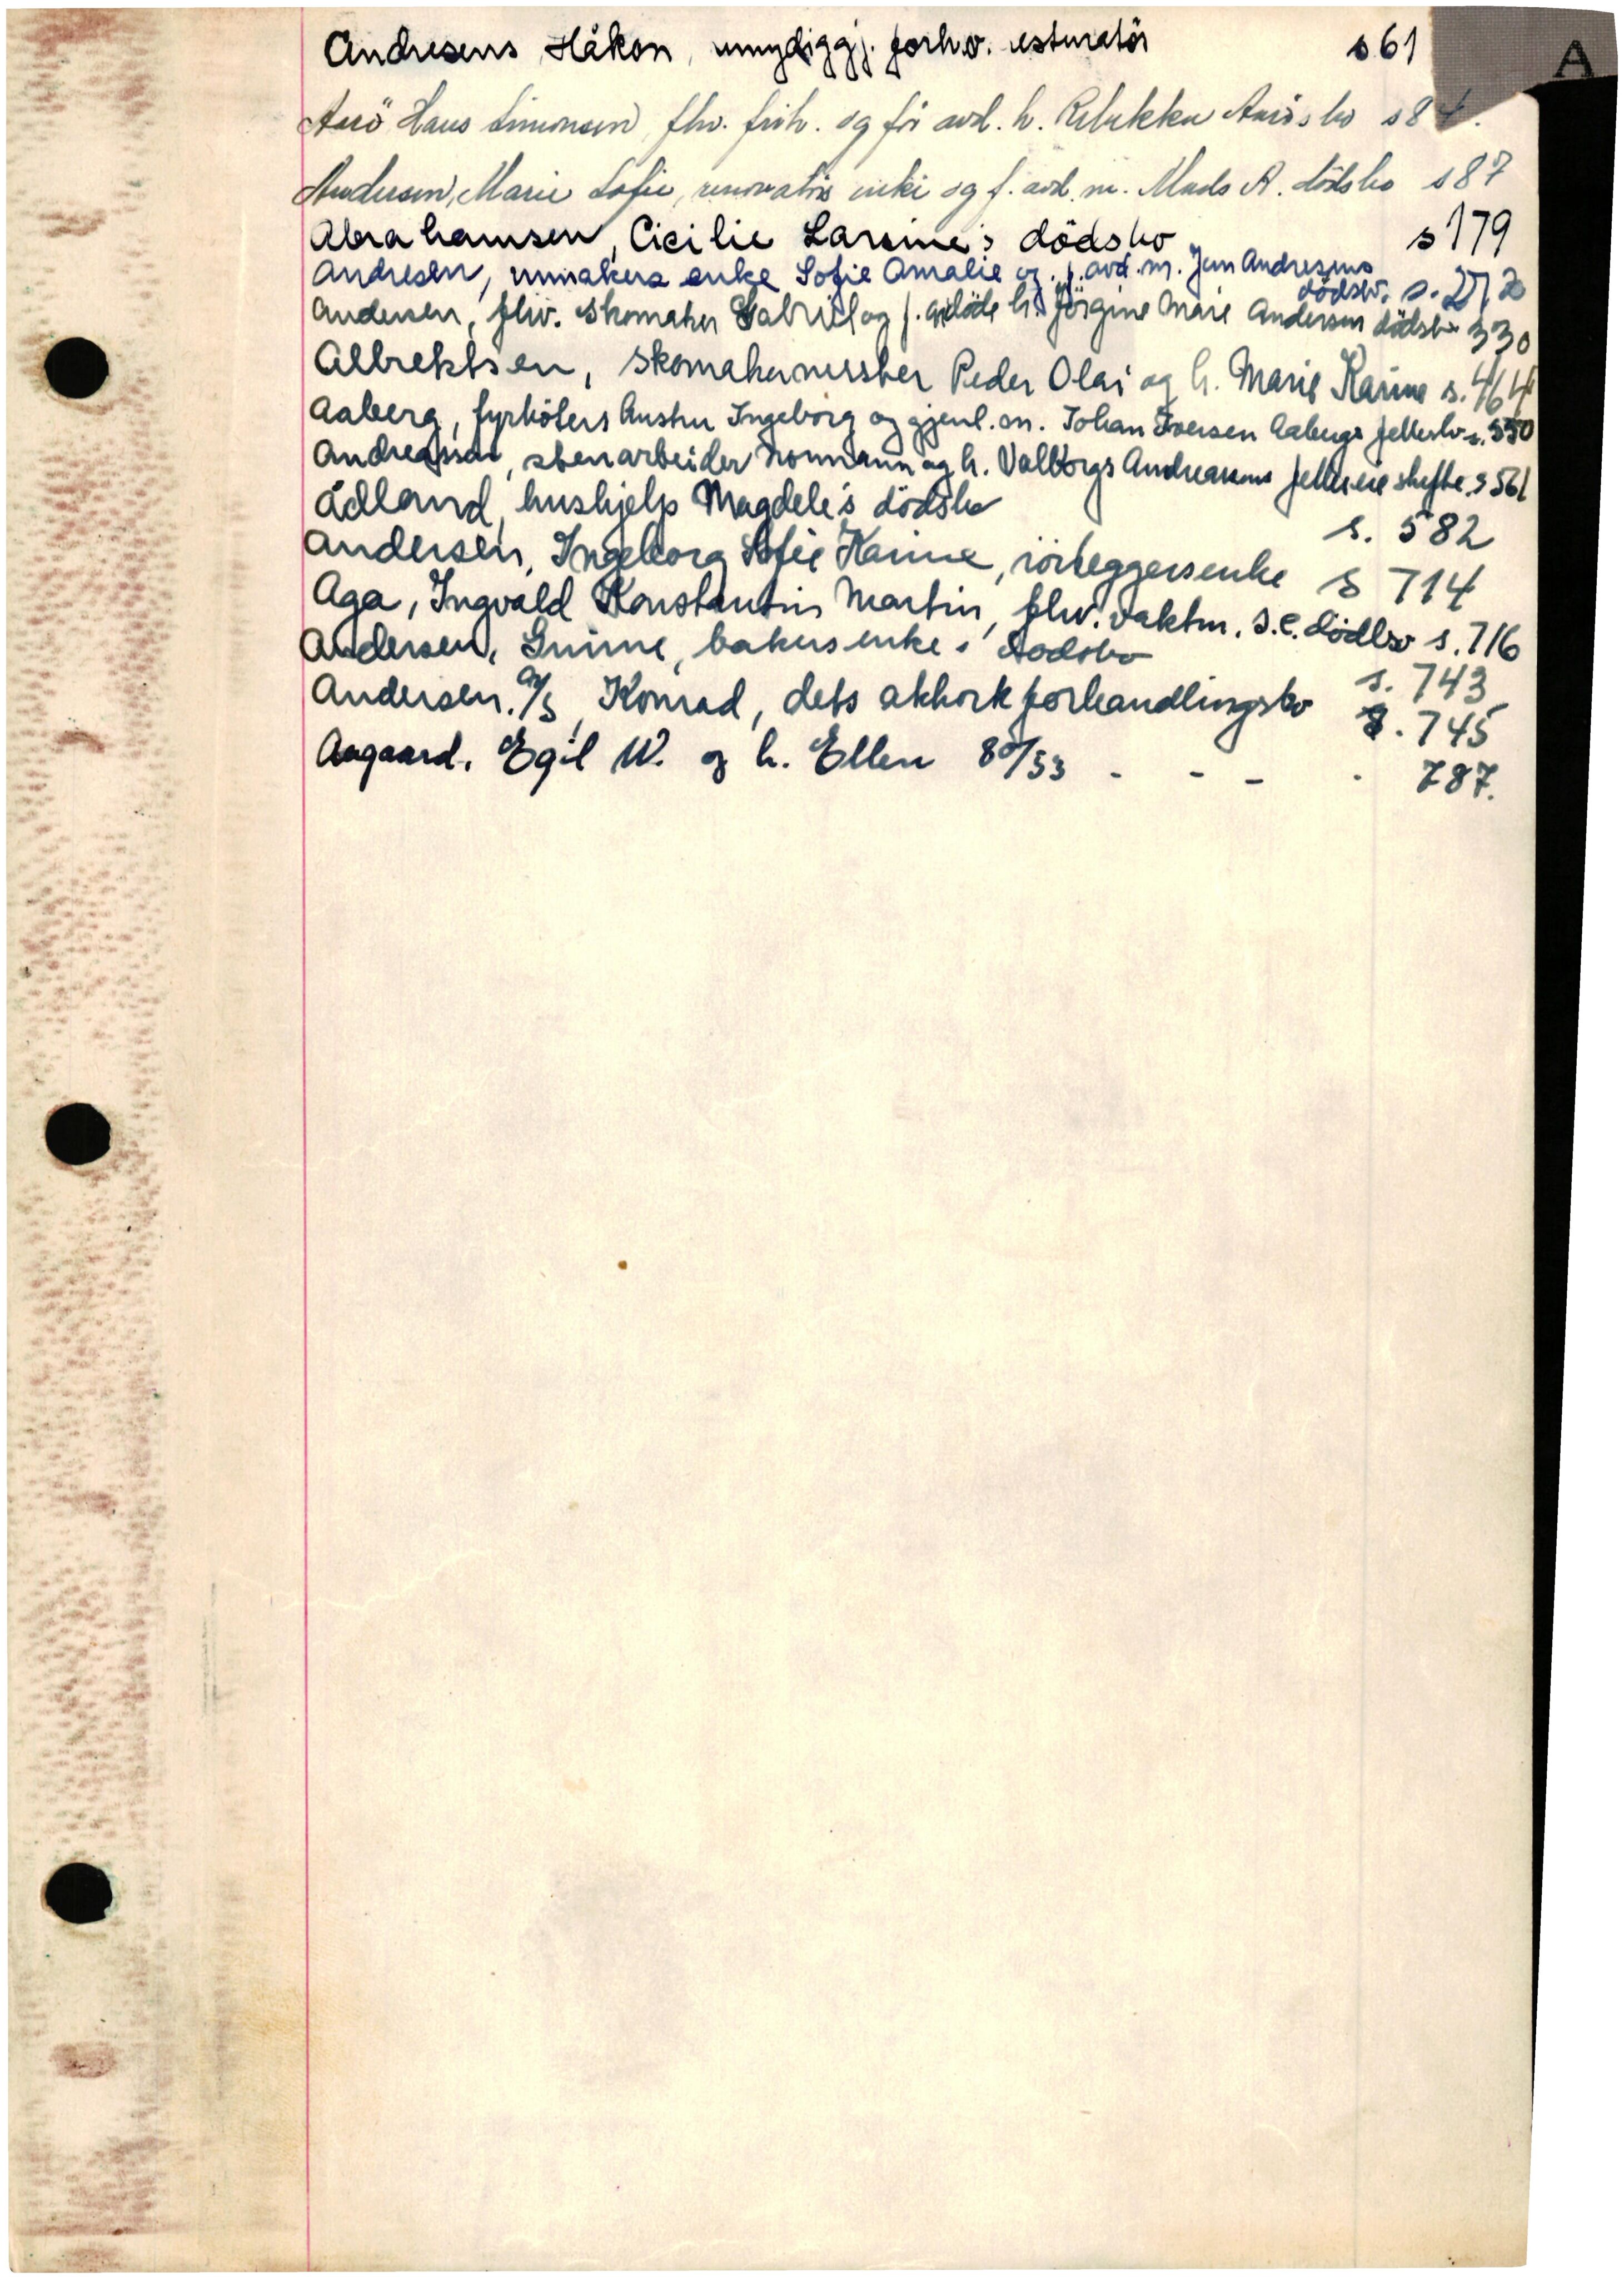 A
Andresens Håkon, umyndiggj. forhv. s 61
Aurö Hans Simonsen fhv. og för avd. h. Rebekka Aurös bo s 84.
Andersen, Marie Sofie, renovatörs enke og f. avd. m. Mads A. dödsbo s 87
Abrahamsen, Cicilie Larsine's dödsbo s 179
Andresen, urmakers enke Sofie Amalie og f. avd. m. Jens Andresens
dödsbo. s. 272
Andersen, fhv. skomaker Gabriel og f. avdöde h. Jörgine Marie Andersen dödsbo 330
Albrektsen, skomakermester Peder Olai og h. Marie Karine s. 464
Aaberg, fyrböters hustru Ingeborg og gjenl. m. Johan Iversen Aabergs fellesbo s. 550
Andreassen, stenarbeider Normann og h. Valborgs Andreasens felleseie skifte s 561
Ådland, hushjelp Magdele's dödsbo s. 582
Andersen, Ingeborg Sofie Karine, rörleggersenke s 714
Aga, Ingvald Konstantin Martin, fhv. vaktm. s.e. dödsbo s. 716
Andersen, bakers enke's dödsbo s. 743
Andersen. A/S, Konrad, dets akkordforhandlingsbo s. 745
Aagaard. Egil W. og h. Ellen 80/53 - - - - 787.